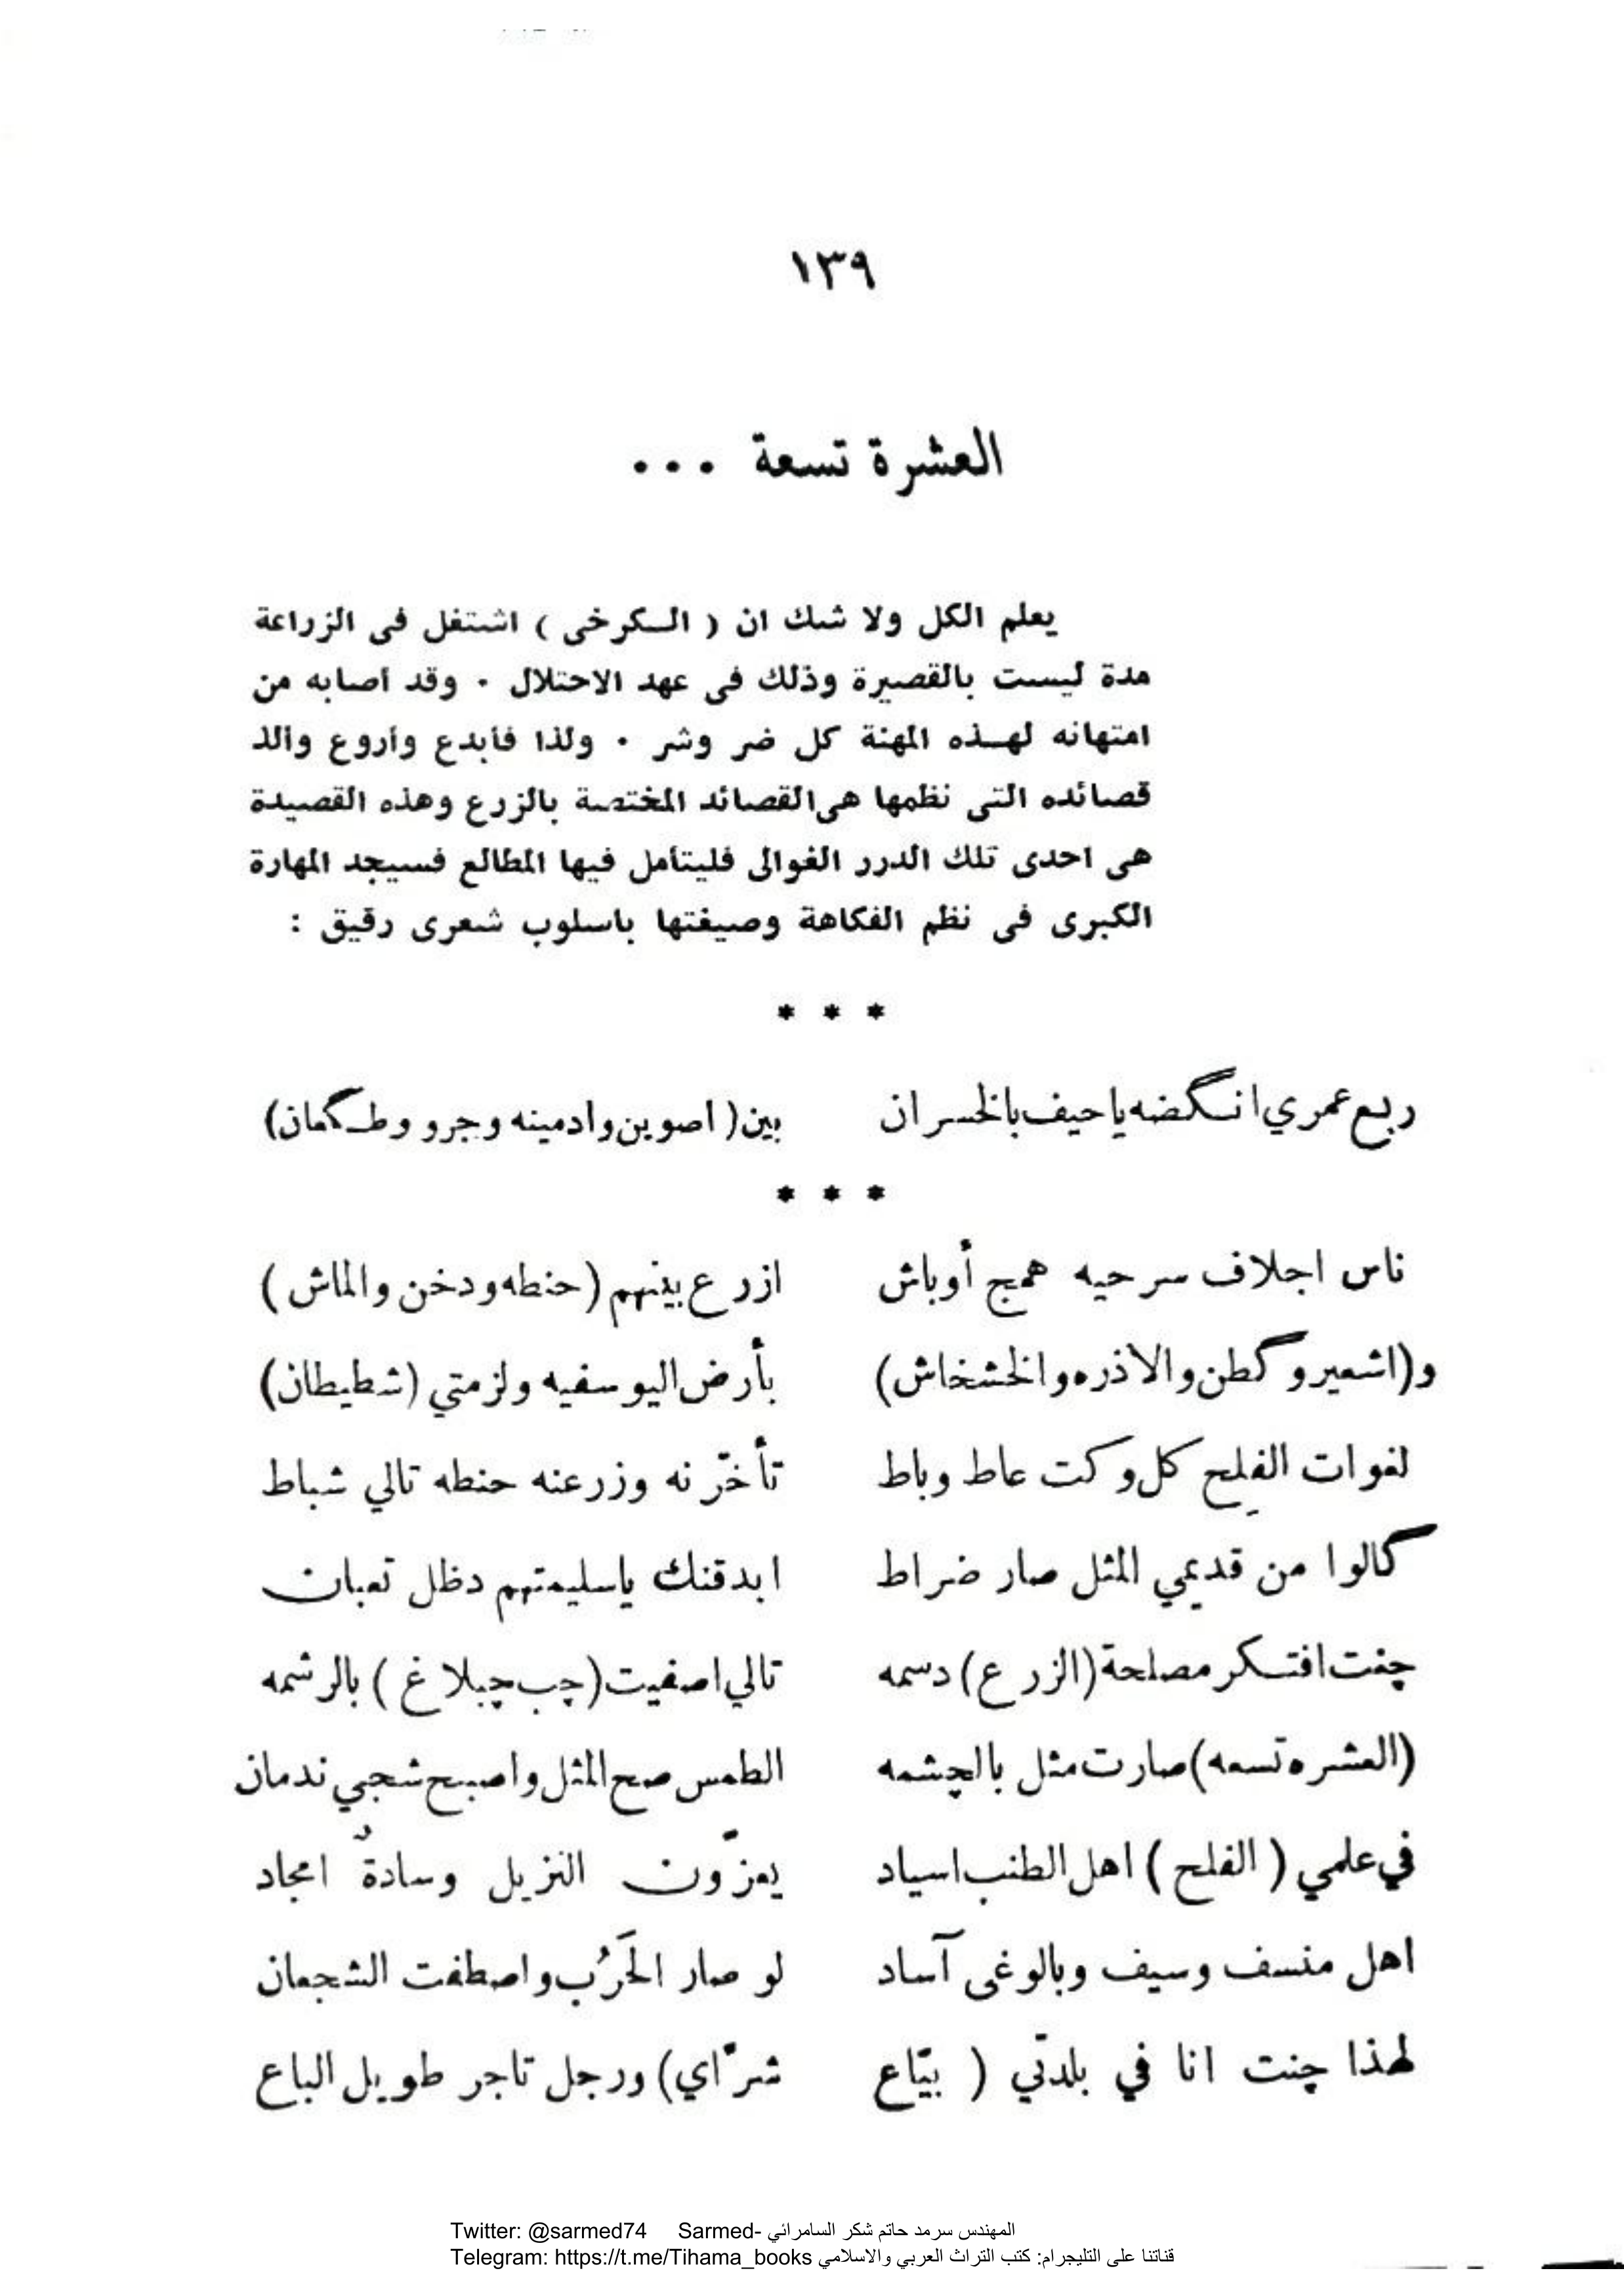 ١٣٩
العشرة تسعة ...
يعلم الكل ولا شك ان ( الكرخى ) اشتغل فى الزراعة
مدة ليست بالقصيرة وذلك فى عهد الاحتلال . وقد اصابه من
امتهانه لهذه المهنة كل ضر وشر . ولذا فأبدع واروع والذ
قصائده التى نظمها هى القصائد المختصة بالزرع وهذه القصيدة
هى احدى تلك الدرر الغوالى فليتأمل فيها المطالع فسيجد المهارة
الكبرى فى نظم الفكاهة وصيغتها باسلوب شعرى رقيق :
* * *
ربع عمري انگضه ياحيف بالخسران بين (اصوين وادمينه وجرو وطگمان)
* * *
ناس اجلاف سرحيه همج أوباش ازرع بينهم (حنطه ودخن والماش )
و(اشعير وگطن والاذره والخشخاش) بأرض اليوسفيه ولزمتي (شطيطان)
لغوات الفلح كل وكت عاط وباط تأخّرنه وزرعنه حنطه تالي شباط
گالوا من قديمي المثل صار ضراط ابدقنك ياسليمتهم دظل تعبان
چنت افتكر مصلحة (الزرع) دسمه تالي اصفيت (چب چبلاغ ) بالرشمه
(العشره تسعه) صارت مثل بالچشمه الطمس صح المثل واصبح شجي ندمان
في علمي ( الفلح ) اهل الطنب اسياد يعزّون النزيل وسادةٌ امجاد
اهل منسف وسيف وبالوغى آساد لو صار الحَرُب واصطفت الشجعان
لهذا چنت انا في بلدتي ( بيّاع شرّاي) ورجل تاجر طويل الباع
Twitter: @sarmed74 Sarmed- المهندس سرمد حاتم شكر السامرائي
Telegram: https://t.me/Tihama_books قناتنا على التليجرام: كتب التراث العربي والاسلامي